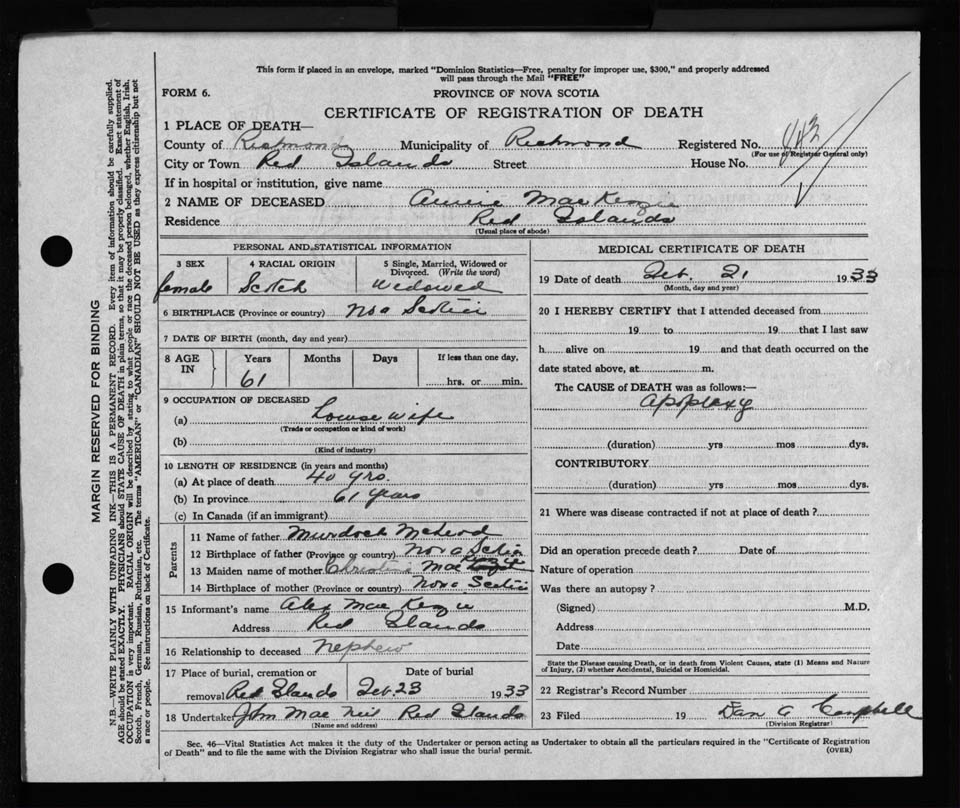 This form if placed in an envelope, marked "Dominion Statistics—Free, penalty for improper use, $300," and properly addressed
will pass through the Mail "FREE"
FORM 6.
PROVINCE OF NOVA SCOTIA
CERTIFICATE OF REGISTRATION OF DEATH
1 PLACE OF DEATH—
County of Richmond Municipality of Richmond Registered No. 443
(For use of Registrar General only)
City or Town Red Islands Street House No.
If in hospital or institution, give name
2 NAME OF DECEASED Annie MacKenzie
Residence Red Islands
(Usual place of abode)
PERSONAL AND STATISTICAL INFORMATION
3 SEX 4 RACIAL ORIGIN 5 Single, Married, Widowed or
Divorced. (Write the word)
female Scotch Widowed
6 BIRTHPLACE (Province or country) Nova Scotia
7 DATE OF BIRTH (month, day and year)
8 AGE IN Years Months Days If less than one day,
61 hrs. or min.
9 OCCUPATION OF DECEASED
(a) House wife
(Trade or occupation or kind of work)
(b)
(Kind of industry)
10 LENGTH OF RESIDENCE (in years and months)
(a) At place of death 40 yrs.
(b) In province 61 years
(c) In Canada (if an immigrant)
Parents
11 Name of father Murdoch McLeod
12 Birthplace of father (Province or country) Nova Scotia
13 Maiden name of mother Christina Mac
14 Birthplace of mother (Province or country) Nova Scotia
15 Informant's name Alex MacKenzie
Address Red Islands
16 Relationship to deceased nephew
17 Place of burial, cremation or Date of burial
removal Red Islands Feb. 23 1933
18 Undertaker John MacNeil Red Islands
(Name and address)
MEDICAL CERTIFICATE OF DEATH
19 Date of death Feb. 21 1933
(Month, day and year)
20 I HEREBY CERTIFY that I attended deceased from
19 to 19 that I last saw
h alive on 19 and that death occurred on the
date stated above, at m.
The CAUSE of DEATH was as follows:—
Apoplexy
(duration) yrs mos dys.
CONTRIBUTORY
(duration) yrs mos dys.
21 Where was disease contracted if not at place of death?
Did an operation precede death? Date of
Nature of operation
Was there an autopsy?
(Signed) M.D.
Address
Date
State the Disease causing Death, or in death from Violent Causes, state (1) Means and Nature
of Injury, (2) whether Accidental, Suicidal or Homicidal.
22 Registrar's Record Number
23 Filed 19 Dan A Campbell
(Division Registrar)
Sec. 46—Vital Statistics Act makes it the duty of the Undertaker or person acting as Undertaker to obtain all the particulars required in the "Certificate of Registration
of Death" and to file the same with the Division Registrar who shall issue the burial permit.
(OVER)
MARGIN RESERVED FOR BINDING
N.B.—WRITE PLAINLY WITH UNFADING INK—THIS IS A PERMANENT RECORD. Every item of information should be carefully supplied.
AGE should be stated EXACTLY. PHYSICIANS should STATE CAUSE OF DEATH in plain terms, so that it may be properly classified. Exact statement of
OCCUPATION is very important. RACIAL ORIGIN will be described by stating to what people or race the deceased person belonged, whether English, Irish,
Scotch, French, German, Russian, Ruthenian, etc. The terms "AMERICAN" or "CANADIAN" SHOULD NOT BE USED as they express citizenship but not
a race or people. See instructions on back of Certificate.